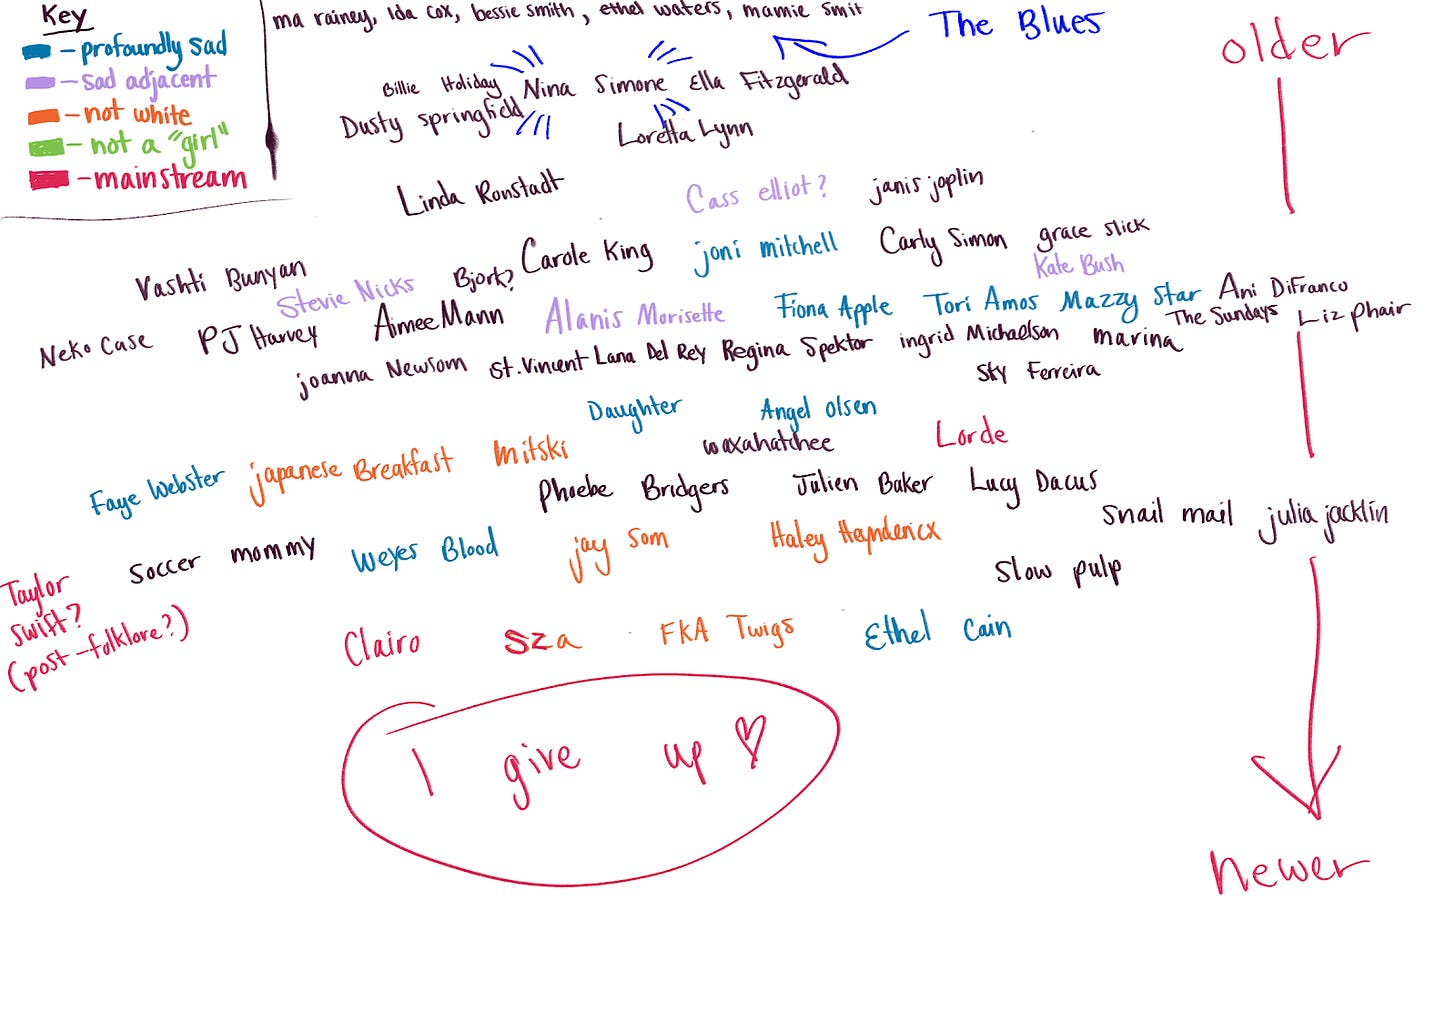 Key
- profoundly sad
- sad adjacent
- not white
- not a "girl"
- mainstream
ma rainey, Ida Cox, bessie smith, ethel waters, mamie smit
The Blues
older
Billie Holiday Nina Simone Ella Fitzgerald
Dusty springfield Loretta Lynn
Linda Ronstadt Cass elliot? janis joplin
Vashti Bunyan Carole King joni mitchell Carly Simon grace slick
Stevie Nicks Bjork? Kate Bush
Neko Case PJ Harvey Aimee Mann Alanis Morisette Fiona Apple Tori Amos Mazzy Star Ani DiFranco
The Sundays Liz phair
joanna Newsom St. Vincent Lana Del Rey Regina Spektor ingrid Michaelson marina
Sky Ferreira
Daughter Angel olsen
waxahatchee Lorde
Faye Webster japanese Breakfast mitski
Phoebe Bridgers Julien Baker Lucy Dacus
Snail mail julia jacklin
Soccer mommy Weyes Blood jay som Haley Heyndericx
Slow pulp
Taylor
swift?
(post-folklore?)
Clairo Sza FKA Twigs Ethel Cain
I give up
newer